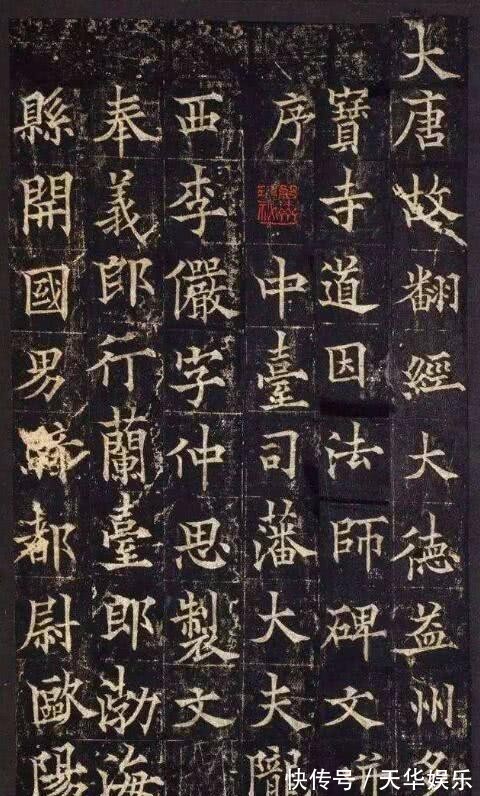 大唐故翻經大德益州多
寶寺道因法師碑文并
序 中臺司藩大夫隴
西李儼字仲思製文
奉義郎行蘭臺郎渤海
縣開國男都尉歐陽
快传号／天华娱乐